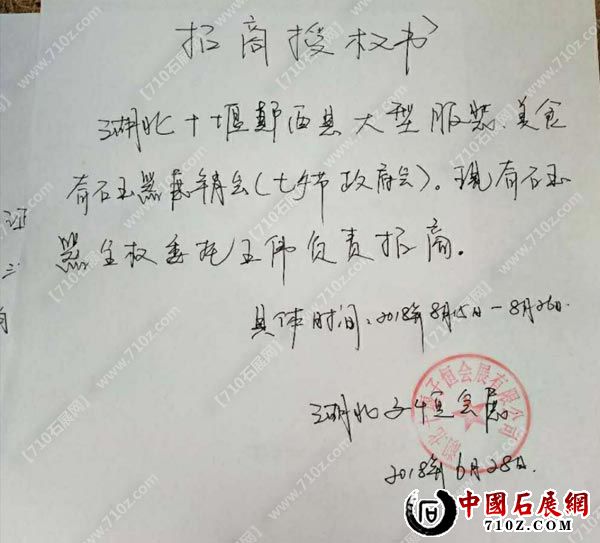 招商授权书
湖北十堰郧西县大型服装、美食
奇石玉器展销会(七夕节政府会)。现奇石玉
器全权委托王伟负责招商。
具体时间:2018年8月15日-8月26日.
湖北子恒会展
2018年6月28日.
子恒会展有限公司
证
中國石展網
710Z.COM
www.710z.com
【710石展网】